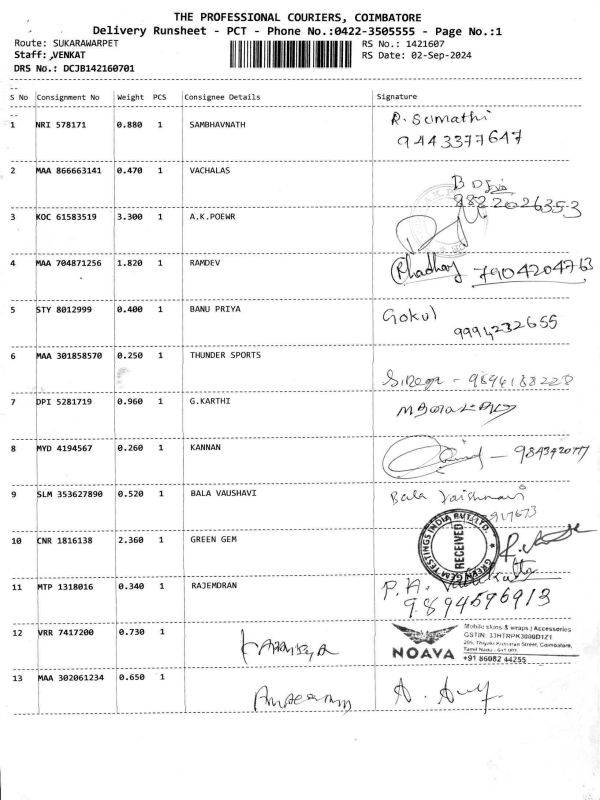 THE PROFESSIONAL COURIERS, COIMBATORE
Delivery Runsheet - PCT - Phone No.:0422-3505555 - Page No.:1
Route: SUKARAWARPET RS No.: 1421607
Staff: ,VENKAT RS Date: 02-Sep-2024
DRS No.: DCJB142160701
S No Consignment No Weight PCS Consignee Details Signature
1 NRI 578171 0.880 1 SAMBHAVNATH R. Sumathi
9443377647
2 MAA 866663141 0.470 1 VACHALAS
3 KOC 61583519 3.300 1 A.K.POEWR
4 MAA 704871256 1.820 1 RAMDEV 7904204763
5 STY 8012999 0.400 1 BANU PRIYA Gokul
9994232655
6 MAA 301858570 0.250 1 THUNDER SPORTS
7 DPI 5281719 0.960 1 G.KARTHI
8 MYD 4194567 0.260 1 KANNAN
9 SLM 353627890 0.520 1 BALA VAUSHAVI Bala Vaishnavi
10 CNR 1816138 2.360 1 GREEN GEM
GREEN GEM TESTINGS INDIA PVT. LTD.
RECEIVED
11 MTP 1318016 0.340 1 RAJEMDRAN
9894596913
12 VRR 7417200 0.730 1
NOAVA
Mobile skins & wraps | Accessories
GSTIN: 33HTRPK3000D1Z1
+91 86082 44255
13 MAA 302061234 0.650 1